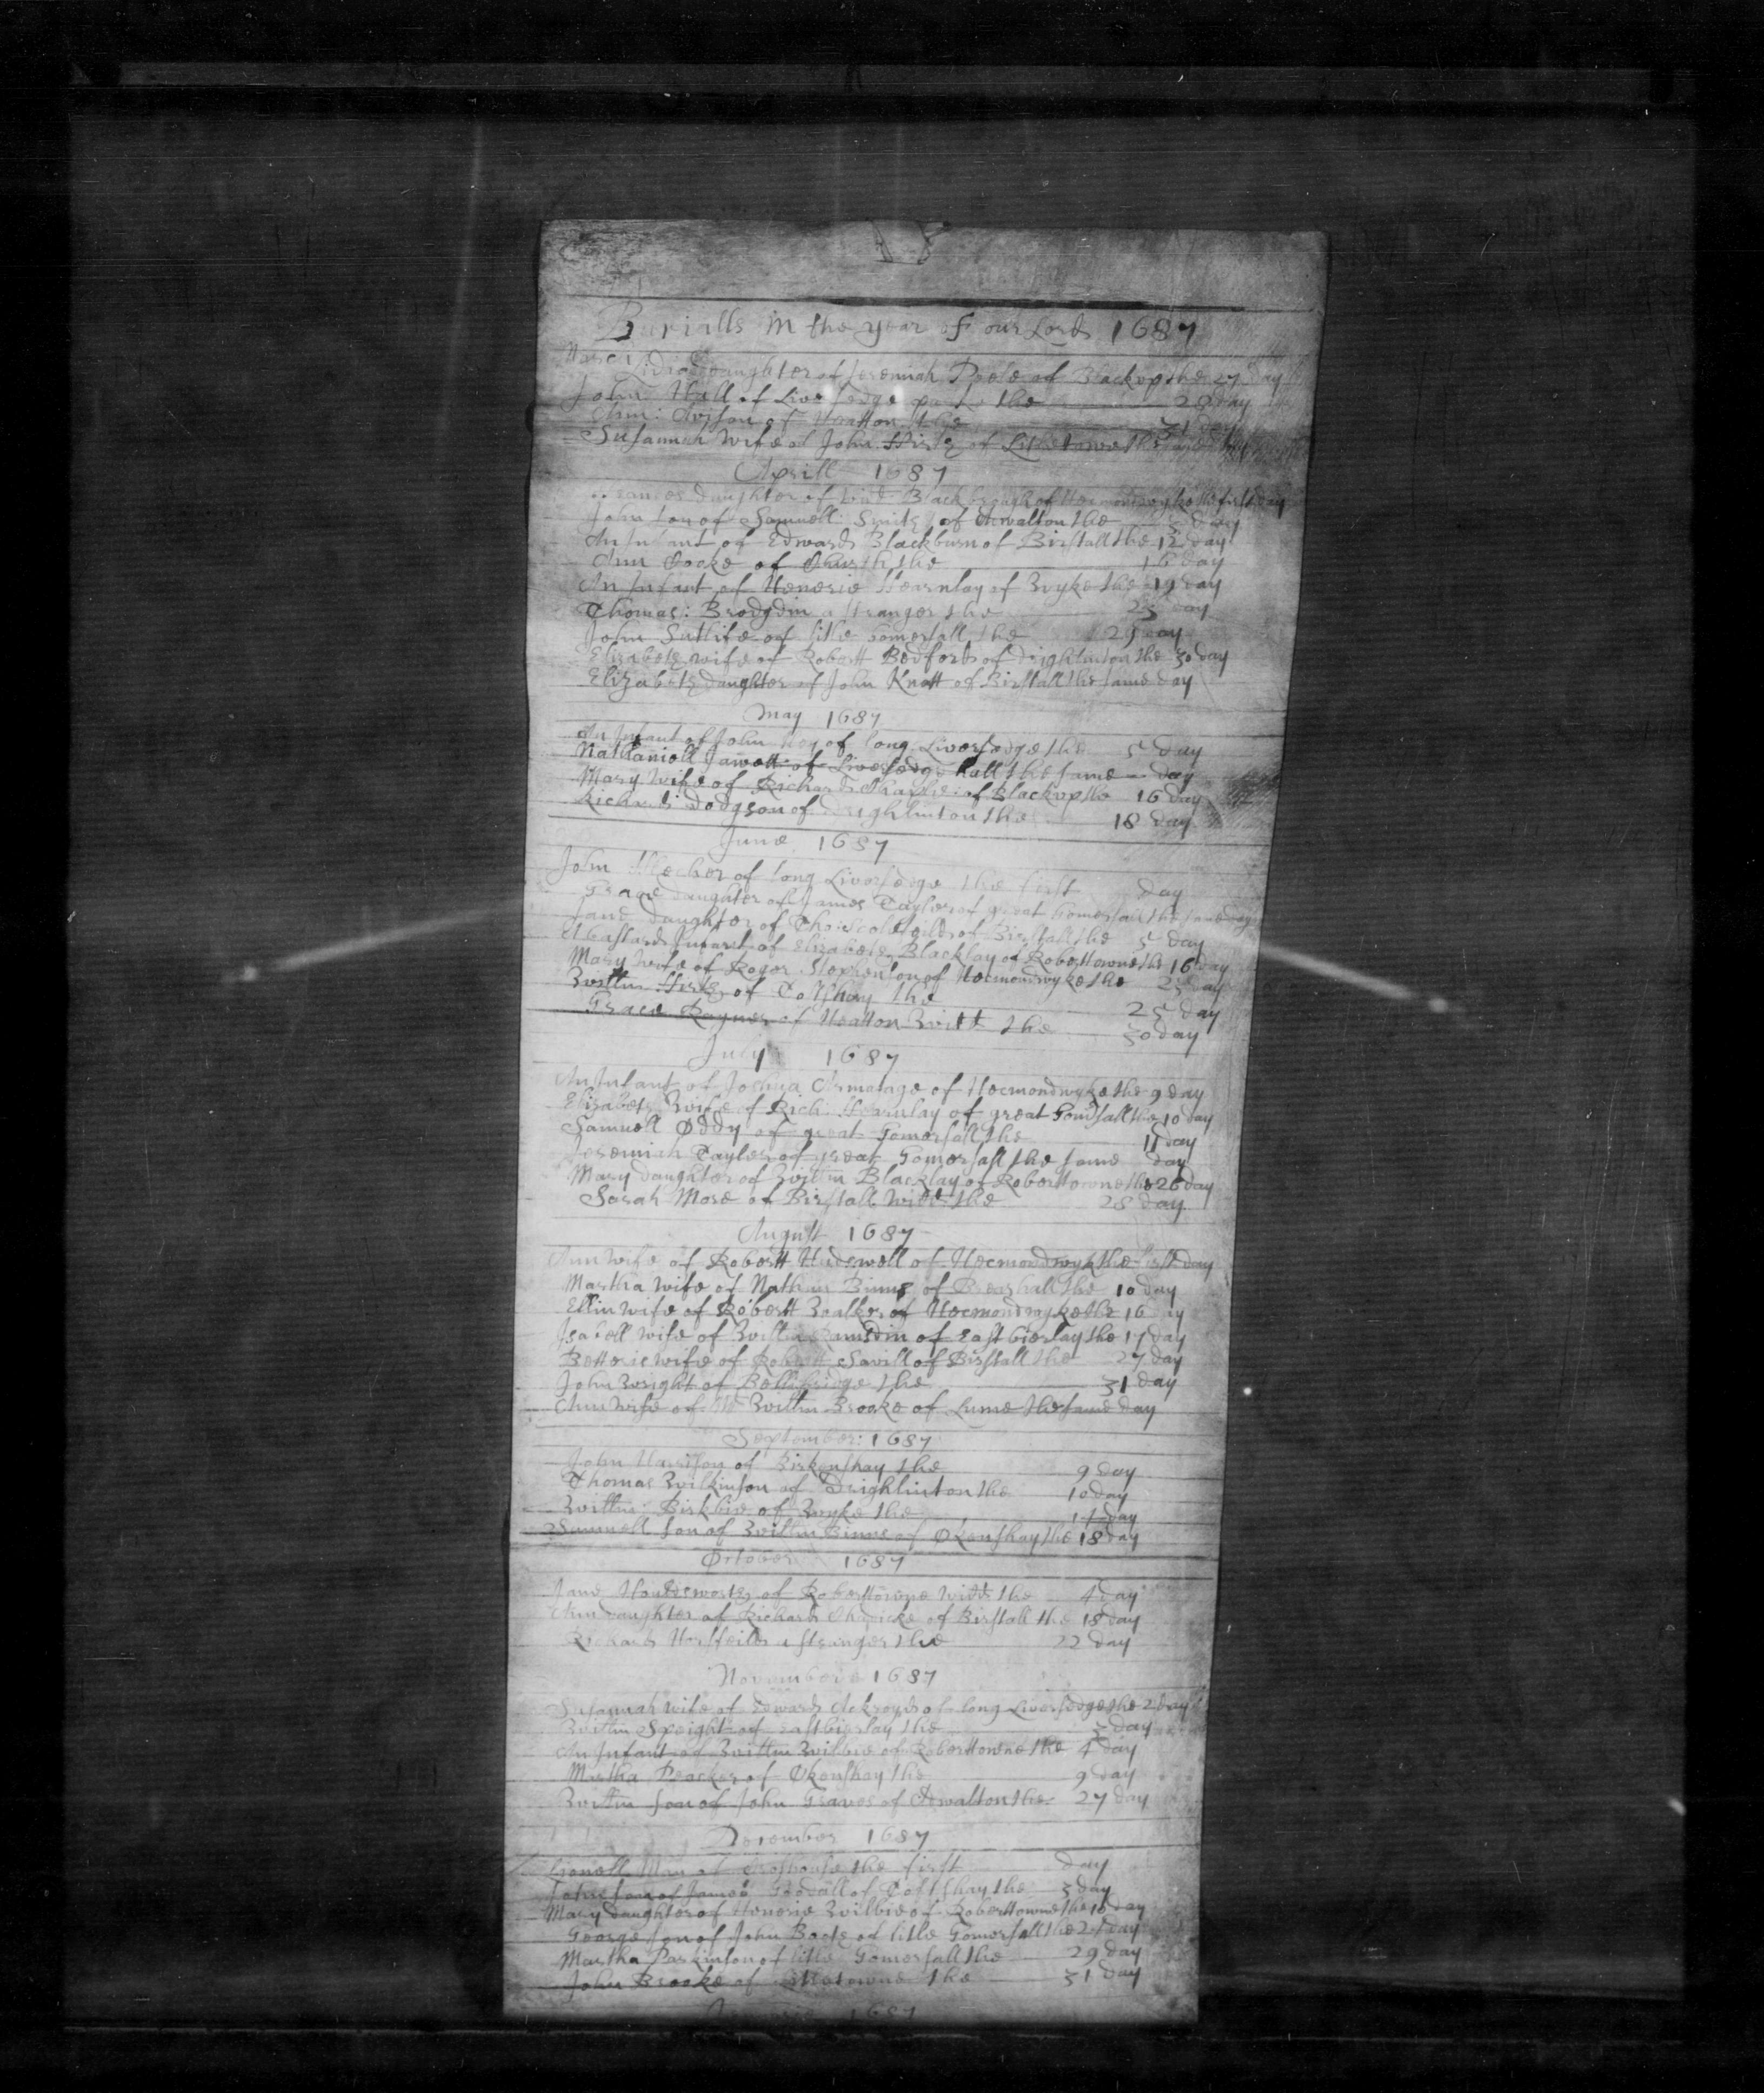 Burialls in the year of our Lord 1687
March
Lidia daughter of Jeremiah Poole of Blackup the 27 day
John Hall of Liversedge the 28 day
Ann: of Heatton the 31 day
Susannah wife of John Hirst of Litletowne the same
Aprill 1687
daughter of Blackbrough of Hecmondwyke the first day
John son of Samuell Smith of Adwalton the 5 day
An Infant of Edward Blackburn of Birstall the 12 day
Ann Cooke of the 16 day
An Infant of Henerie Hearnlay of Wyke the 19 day
Thomas: Brodgdin a stranger the 23 day
John Sutlife of litle Gomersall the 29 day
Elizabeth wife of Robert Bedford of Drighlinton the 30 day
Elizabeth daughter of John Knott of Birstall the same day
May 1687
An Infant of John of long Liversedge the 5 day
Nathaniell Jawett of Liversedge hall the same day
Mary Wife of Richard Tharpe of Blackup the 16 day
Richard Dodgson of Drighlinton the 18 day
June 1687
John of long Liversedge the first day
Grace daughter of James Tayler of great Gomersall the same day
Jane daughter of of Birstall the 5 day
A bastard Infant of Elizabeth Blacklay of Roberttowne the 16 day
Mary wife of Roger Stephenson of Hecmondwyke the 23 day
Willm Hirst of Totshay the 25 day
Grace Rayner of Heatton Widd the 30 day
July 1687
An Infant of Joshua Armatage of Hecmondwyke the 9 day
Elizabeth Wife of Rich: Hearnlay of great Gomersall the 10 day
Samuell Oddy of great Gomersall the 11 day
Jeremiah Tayler of great Gomersall the same day
Mary daughter of Willm Blacklay of Roberttowne the 26 day
Sarah More of Birstall Widd: the 28 day
August 1687
Ann Wife of Robertt of Hecmondwyk the first day
Martha wife of Nathan Binns of the 10 day
Ellin wife of Robertt Walker of Hecmondwyke the 16 day
Isabell wife of Willm Ramsdin of East bierlay the 17 day
Betteric wife of Robertt Savill of Birstall the 27 day
John Wright of Bellibridge the 31 day
Ann wife of Mr Willm Brooke of Lume the same day
September: 1687
John Harrison of Birkinshay the 9 day
Thomas Wilkinson of Drighlinton the 10 day
Willm: Birkbie of Wyke the day
Samuell son of Willm Binns of Okenshay the 18 day
October 1687
Jane of Roberttowne Widd the 4 day
Ann daughter of Richard of Birstall the 18 day
Richard a stranger the 22 day
November 1687
Susannah wife of Edward Ackroyd of long Liversedge the 2 day
Willm Speight of east bierlay the 3 day
An Infant of Willm Wilbie of Roberttowne the 4 day
Martha of Okenshay the 9 day
Willm son of John Graves of Adwalton the 27 day
December 1687
of the first day
John son of James Goodall of Totshay the 3 day
Mary daughter of Henerie Wilbie of Roberttowne the 16 day
George son of John Boots of litle Gomersall the 24 day
Martha Parkinson of litle Gomersall the 29 day
John Brooke of the 31 day
1687